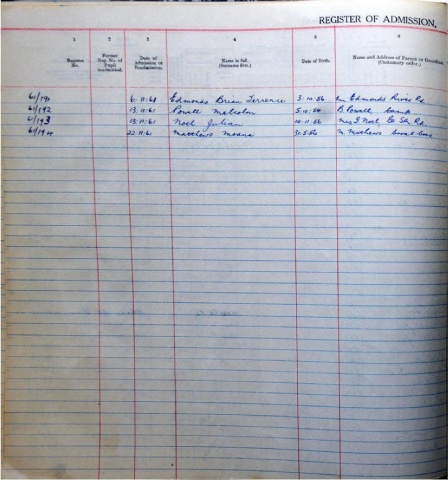 REGISTER OF ADMISSION.
1 2 3 4 5 6
Register No. Former Reg. No. of Pupil readmitted. Date of Admission or Readmission. Name in full. (Surname first.) Date of Birth. Name and Address of Parent or Guardian. (Customary order.)
61/191 6.11.61 Edmonds Brian Terrance 3.10.56 Edmonds River Rd
61/192 13.11.61 Powell Malcolm 5.10.54 B Powell Camp
61/193 13.11.61 Noel Julian 10.11.56 Noel, Rd
61/194 22.11.61 Matthews Moana 31.5.56 M. Mathews